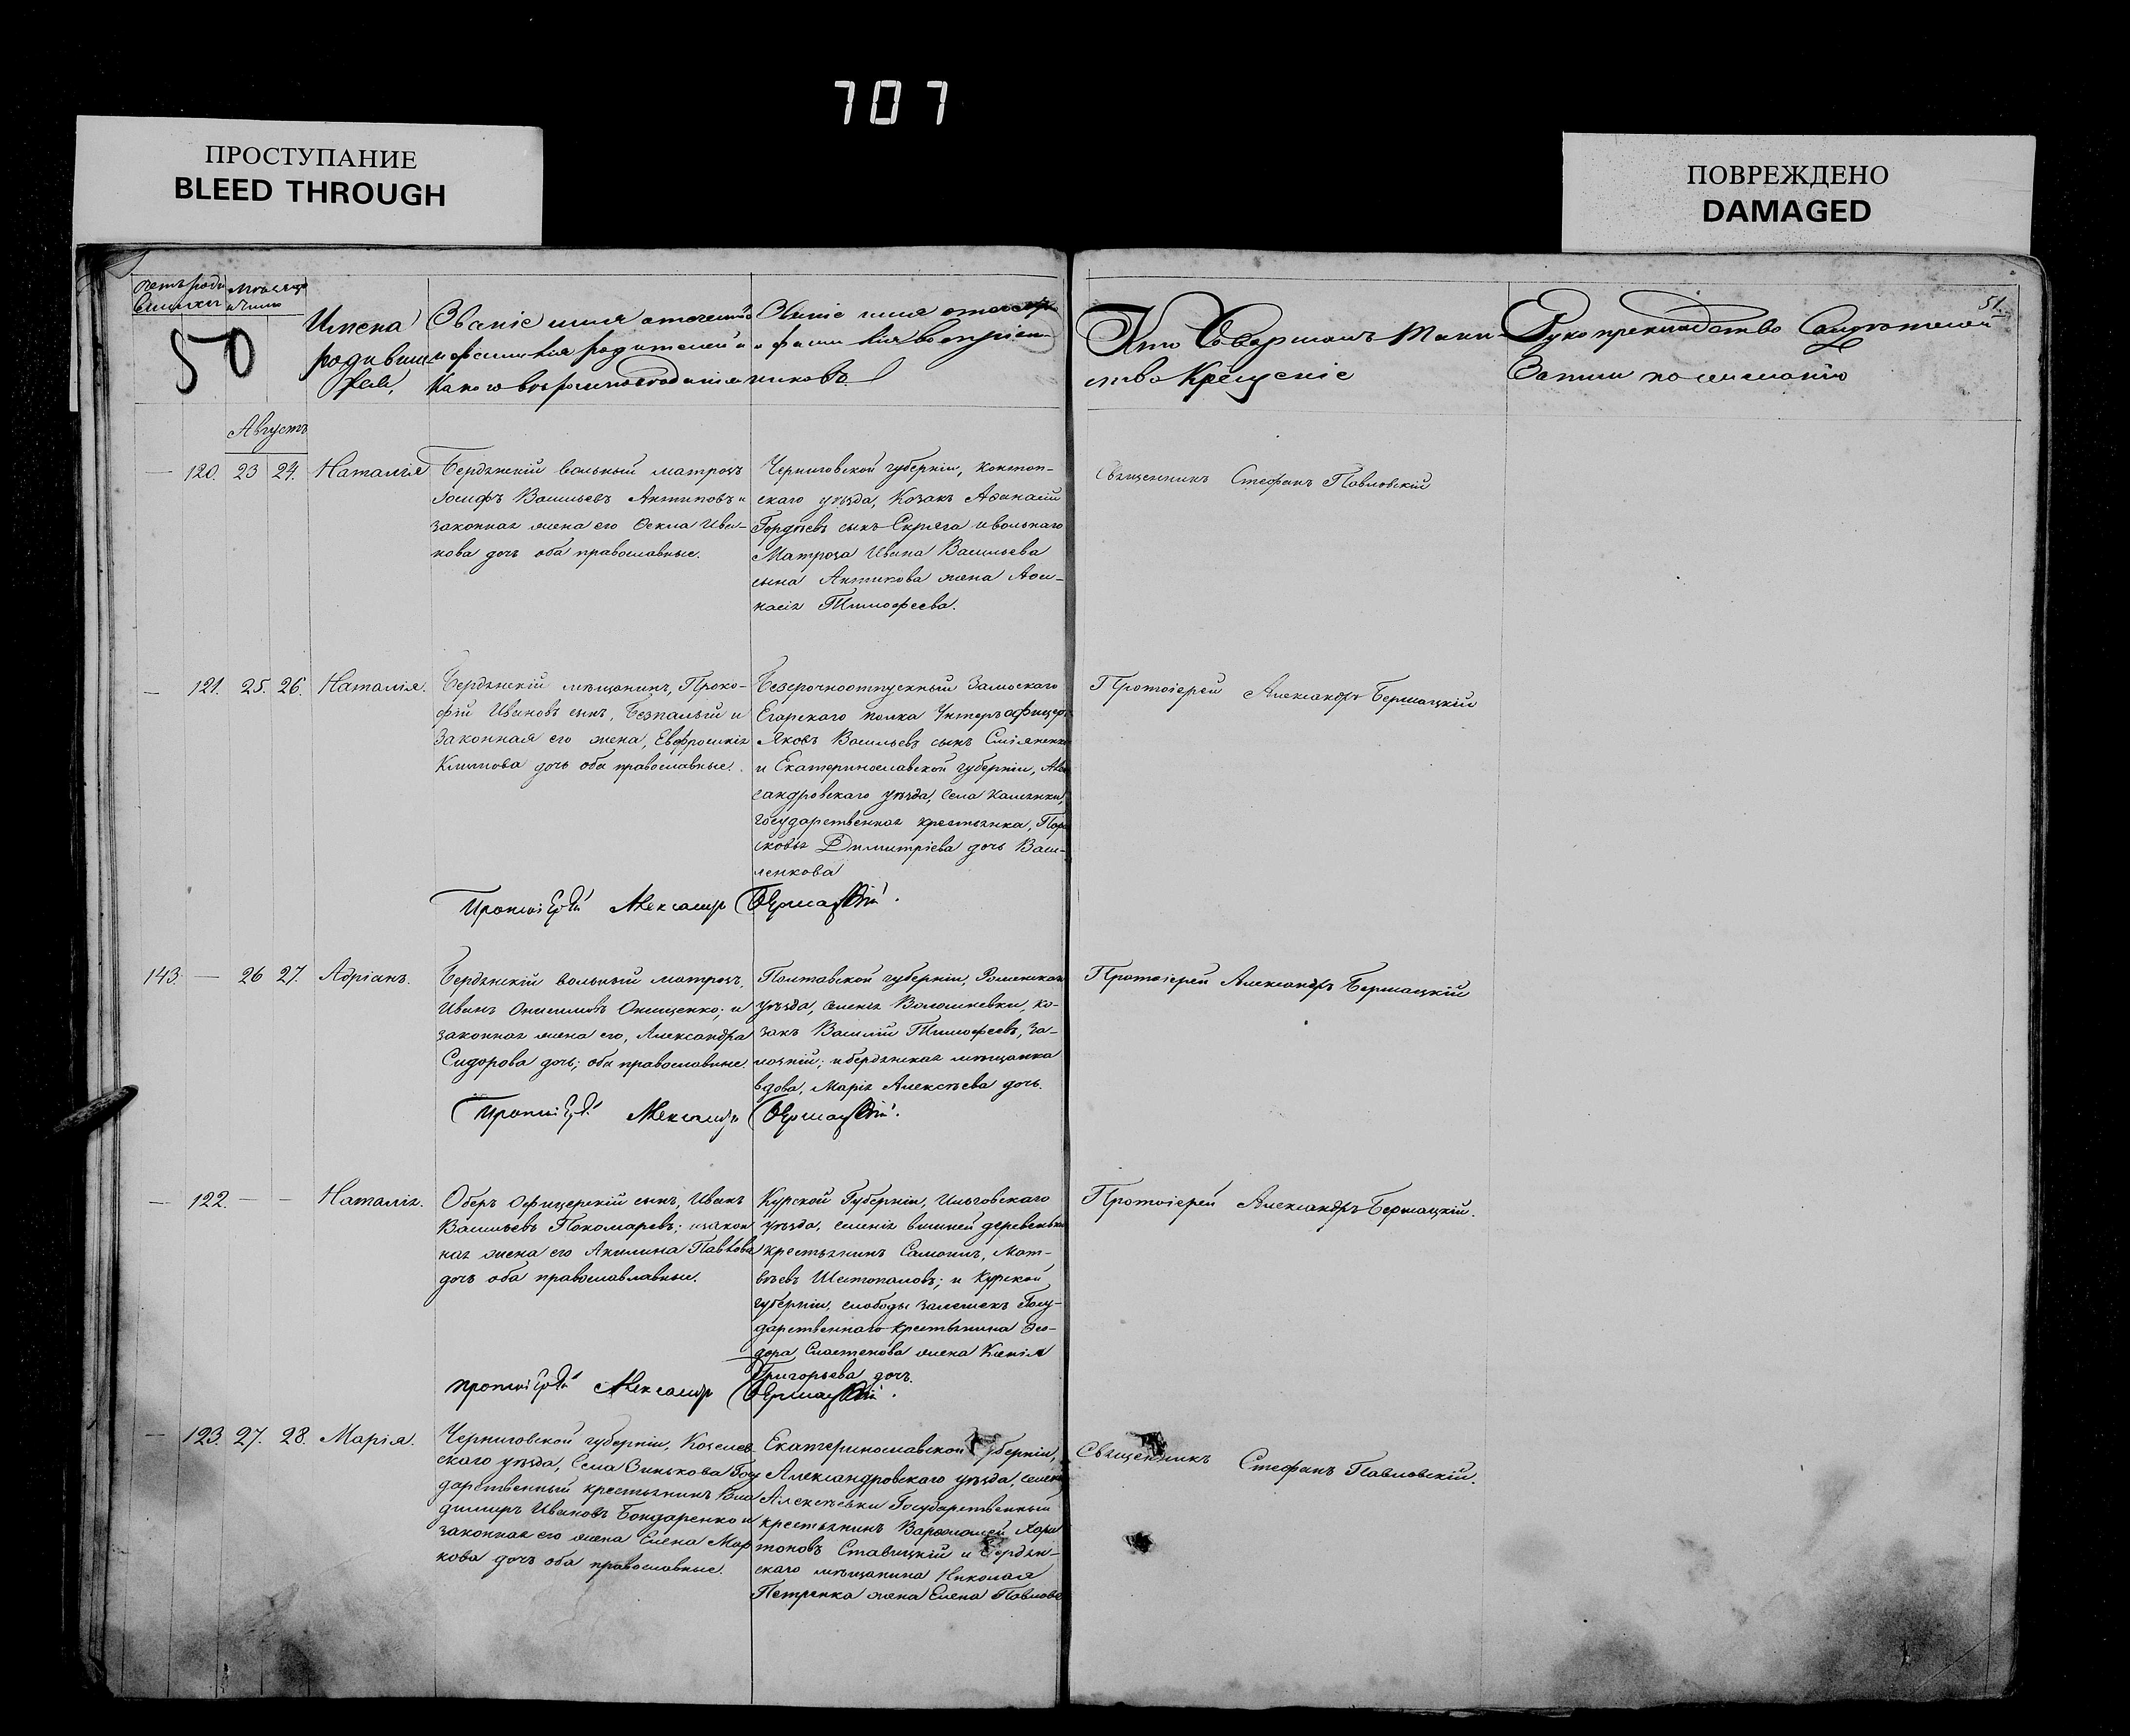 707
ПРОСТУПАНИЕ
BLEED THROUGH
ПОВРЕЖДЕНО
DAMAGED
50
51.
Имена
родивших
ся,
Званіе имя отчество
и фамилія родителей и
какого вѣроисповѣданія
Званіе имя отчество
и фамилія воспріем
никовъ.
Кто совершалъ таин
ство крещеніе
Рукоприкладство свидѣтелей
записи по желанію
Августъ
— 120. 23 24. Наталія
Бердянскій вольный матросъ
Іосифъ Васильевъ Антиповъ и
законная жена его Ѳекла Ива-
нова дочь оба православные.
Черниговской губерніи, Конотоп-
скаго уѣзда, Козакъ Аѳанасій
Гордѣевъ сынъ Скряга и вольнаго
Матроса Ивана Васильева
сына Антипова жена Аѳа-
насія Тимоѳеева.
Священникъ Стефанъ Павловскій
— 121. 25. 26. Наталія.
Бердянскій мѣщанинъ, Проко-
фій Ивановъ сынъ, Безпалый и
Законная его жена, Евфросинія
Климова дочь оба православные.
Безсрочноотпускный Замоскаго
Егарскаго полка Унтеръ офицеръ
Яковъ Васильевъ сынъ
и Екатеринославской губерніи, Алек
сандровскаго уѣзда, села Каменки,
государственная крестьянка, Пара
сковья Димитріева дочь Васи-
ленкова
Протоіерей Александръ Бершацкій
Протоіерей Александръ Бершацкій.
143. — 26 27. Адріанъ.
Бердянскій вольный матросъ,
Иванъ Онисимовъ Онищенко; и
законная жена его, Александра
Сидорова дочь; оба православные.
Полтавской губерніи, Роменскаго
уѣзда, селенія Волошневки, ко-
закъ Василій Тимофеевъ,
и бердянская мѣщанка
вдова, Марія Алексѣева дочь.
Протоіерей Александръ Бершацкій
Протоіерей Александръ Бершацкій.
— 122. — — Наталія.
Оберъ офицерскій сынъ, Иванъ
Васильевъ Покомаревъ; и закон
ная жена его Акилина Павлова
дочь оба православлавные.
Курской Губерніи, Льговскаго
уѣзда, селенія деревеньки
крестьянинъ Самоилъ, Мат-
вѣевъ Шестопаловъ; и Курской
губерніи, слободы Госу-
дарственнаго крестьянина Ѳео-
дора Сластенова жена Ксенія
Григорьева дочь.
Протоіерей Александръ Бершацкій.
протоіерей Александръ Бершацкій.
— 123. 27. 28. Марія.
Черниговской губерніи, Козелец-
скаго уѣзда, Села Зинькова Госу
дарственный крестьянинъ Вла
димиръ Ивановъ Бондаренко и
законная его жена Елена Мар
кова дочь оба православные.
Екатеринославской губерніи,
Александровскаго уѣзда, селенія
Алексѣевки Государственный
крестьянинъ Варѳоломей Хари
тоновъ Ставицкій и Бердян-
скаго мѣщанина Николая
Петренка жена Елена Павлова
Священникъ Стефанъ Павловскій.